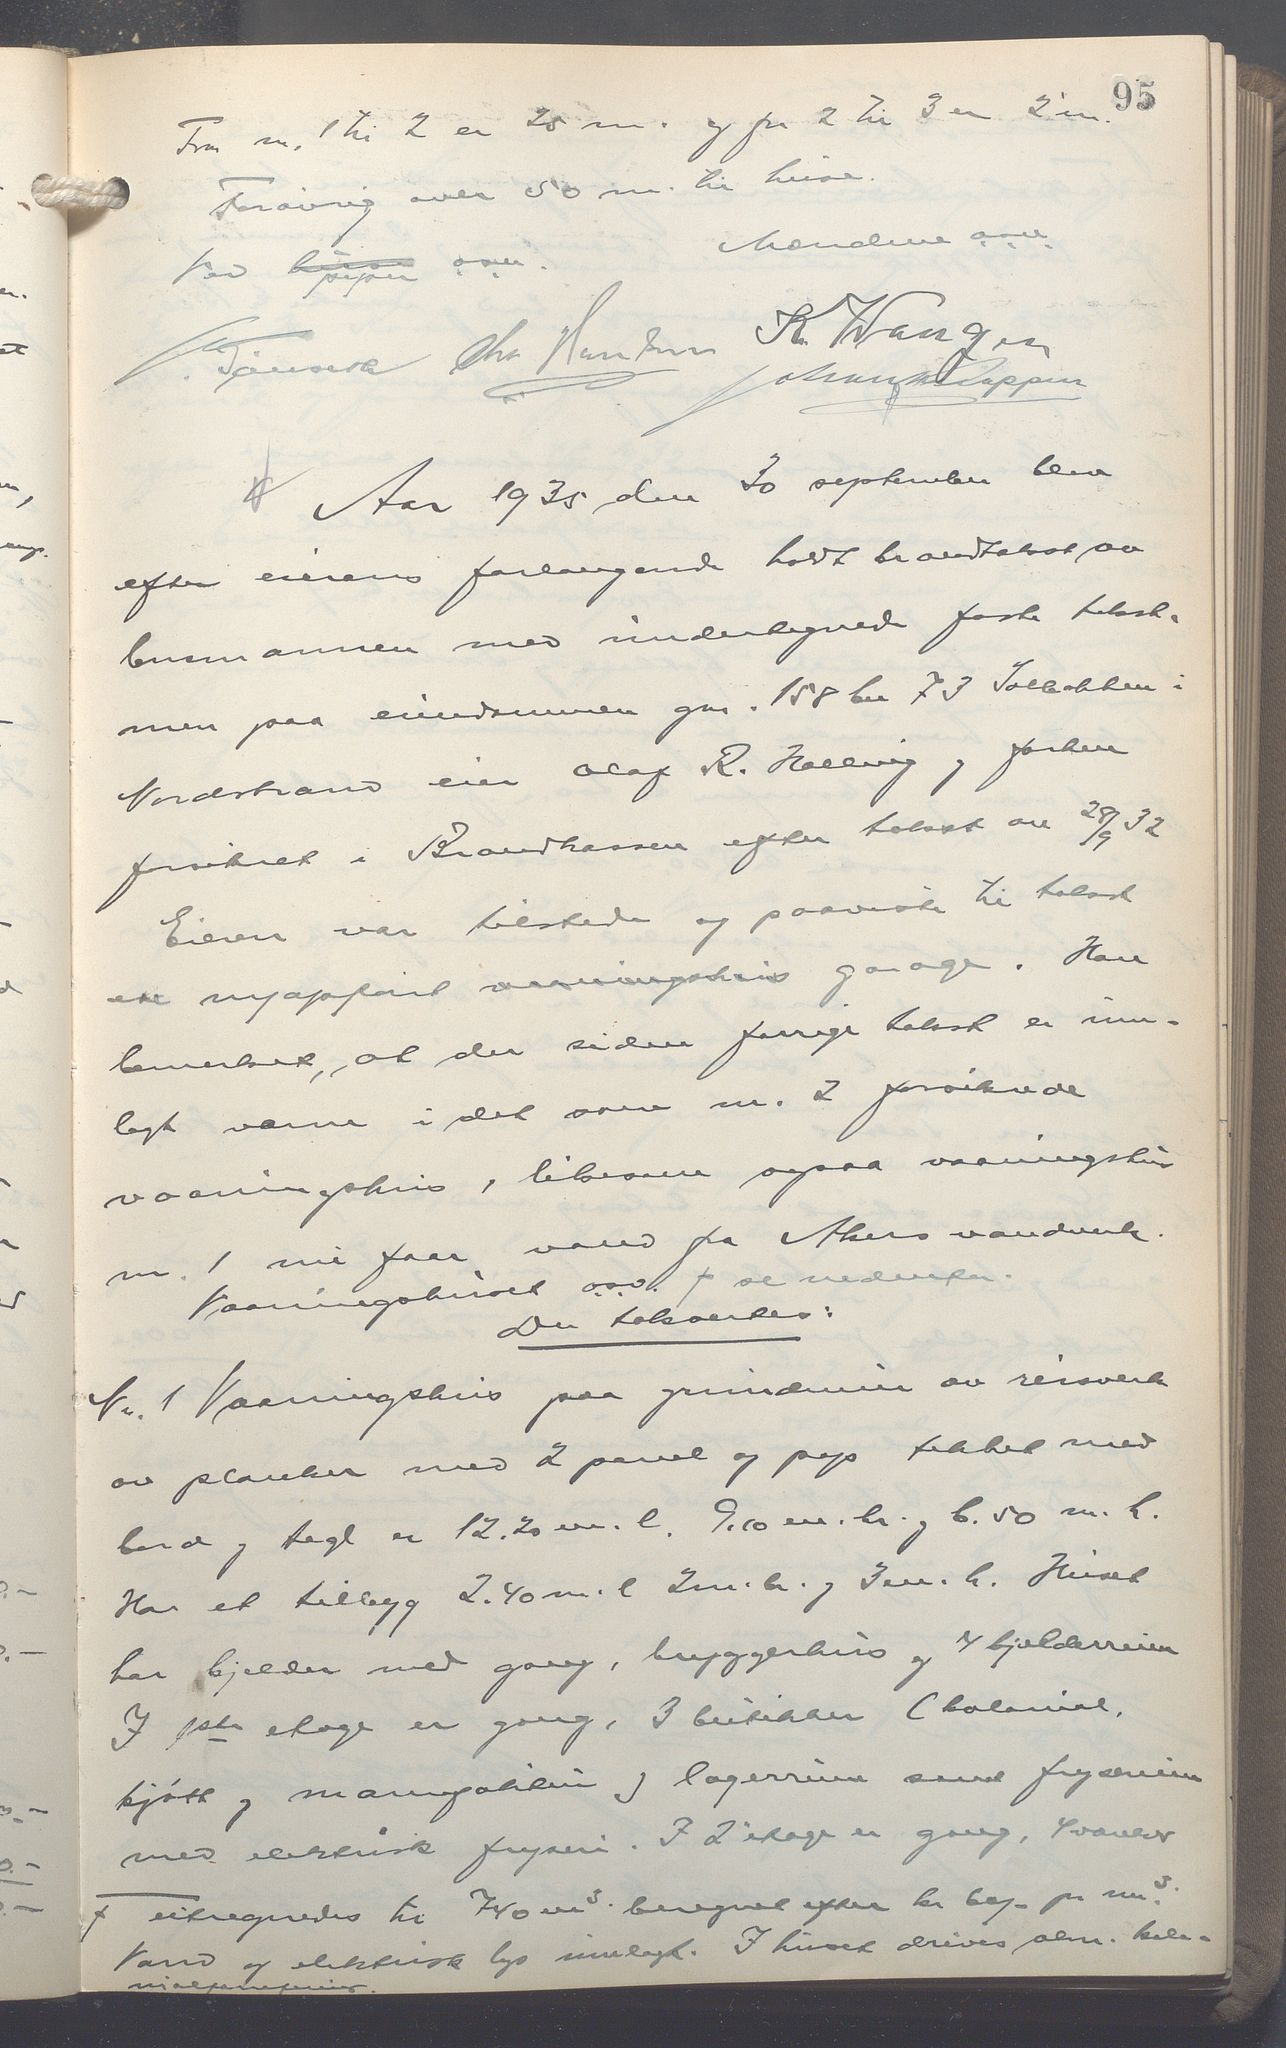 95
Fra nr. 1 til 2 er 25 m. og fra 2 til 3 er 2 m.
Forøvrig over 50 m. til huse.
Ved piper o.s.v. Mændene o.s.v.
Chr Hansen K. Wangen
Johan Kloppen
Aar 1935 den 30 september blev
efter eierens forlangende holdt brandtakst av
lensmannen med undertegnede faste takst-
men paa eiendommen gnr. 158 bnr 73 Solbakken i
Nordstrand eier Olaf R. Hellvig og før
forsikret i Brandkassen efter takst av 28/9 32
Eieren var tilstede og paaviste til takst
en nyopført vaaningshus garage. Han
bemerket, at der siden forrige takst er inn-
lagt varme i det som nr. 2 forsikrede
vaaningshus, likesom ogsaa vaaningshus
nr. 1 nu faar vand fra Akers vandverk.
Vaaningshuset o.s.v. † se nedenfor.
Der taksertes:
Nr. 1 Vaaningshus paa grundmur av reisverk
av planker med 2 panel og pap tekket med
bord og tegl er 12.20 m. l. 9.10 m. br. og 6.50 m. h.
Har et tilbygg 2.40 m. l 2 m. br. og 3 m. h. Huset
har kjelder med gang, bryggerhus og 4 kjelderrum
I 1ste etage er gang, 3 butikker (kolonial,
kjøtt og manufaktur og lagerrum samt fryserum
med elektrisk fryseri. I 2 etage er gang, 4 værelser
† utregnedes til 740 m³ beregnet efter kr pr m³.
Vand og elektrisk lys innlagt. I huset drives alm. kolo-
nialforretning.